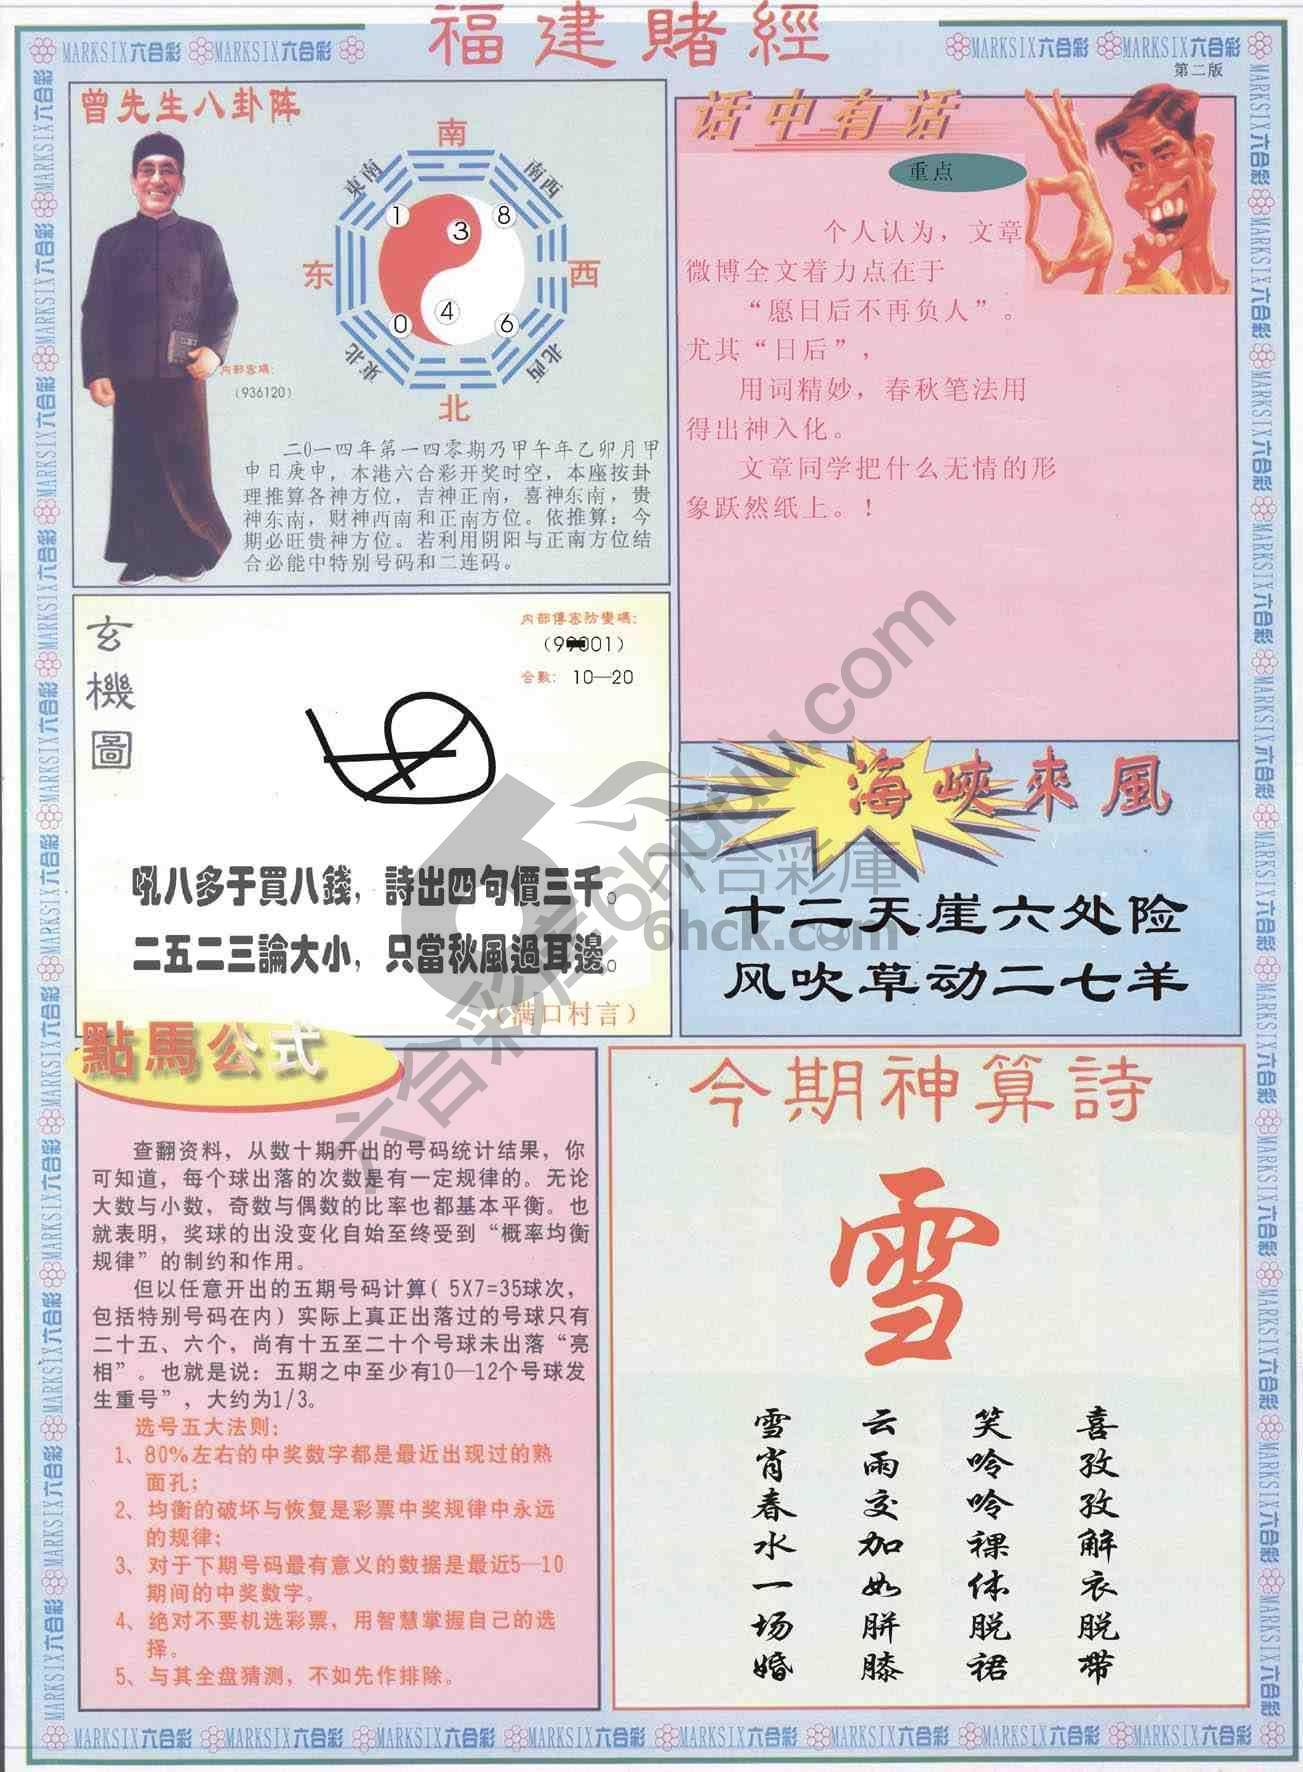 福建賭經
MARKSIX六合彩 MARKSIX六合彩
MARKSIX六合彩 MARKSIX六合彩
第二版
曾先生八卦阵
南
東南
南西
1
3
8
东
西
0
4
6
東北
北西
北
内部密碼:
(936120)
二0一四年第一四零期乃甲午年乙卯月甲
申日庚申，本港六合彩开奖时空，本座按卦
理推算各神方位，吉神正南，喜神东南，贵
神东南，财神西南和正南方位。依推算：今
期必旺贵神方位。若利用阴阳与正南方位结
合必能中特别号码和二连码。
话中有话
重点
个人认为，文章
微博全文着力点在于
“愿日后不再负人”。
尤其“日后”，
用词精妙，春秋笔法用
得出神入化。
文章同学把什么无情的形
象跃然纸上。！
玄機圖
内部傳密防變碼:
合數: 10—20
吼八多于買八錢，詩出四句價三千。
二五二三論大小，只當秋風過耳邊。
（满口村言）
海峽來風
十二天崖六处险
风吹草动二七羊
六合彩庫
6hck.com
點馬公式
查翻资料，从数十期开出的号码统计结果，你
可知道，每个球出落的次数是有一定规律的。无论
大数与小数，奇数与偶数的比率也都基本平衡。也
就表明，奖球的出没变化自始至终受到“概率均衡
规律”的制约和作用。
但以任意开出的五期号码计算( 5X7=35球次，
包括特别号码在内）实际上真正出落过的号球只有
二十五、六个，尚有十五至二十个号球未出落“亮
相”。也就是说：五期之中至少有10—12个号球发
生重号”，大约为1/3。
选号五大法则:
1、80%左右的中奖数字都是最近出现过的熟
面孔;
2、均衡的破坏与恢复是彩票中奖规律中永远
的规律;
3、对于下期号码最有意义的数据是最近5—10
期间的中奖数字。
4、绝对不要机选彩票，用智慧掌握自己的选
择。
5、与其全盘猜测，不如先作排除。
今期神算詩
雪
喜孜孜解衣脱带
笑吟吟裸体脱裙
云雨交加如胼膝
雪肖春水一场婚
MARKSIX六合彩 MARKSIX六合彩 MARKSIX六合彩 MARKSIX六合彩 MARKSIX六合彩 MARKSIX六合彩 MARKSIX六合彩 MARKSIX六合彩